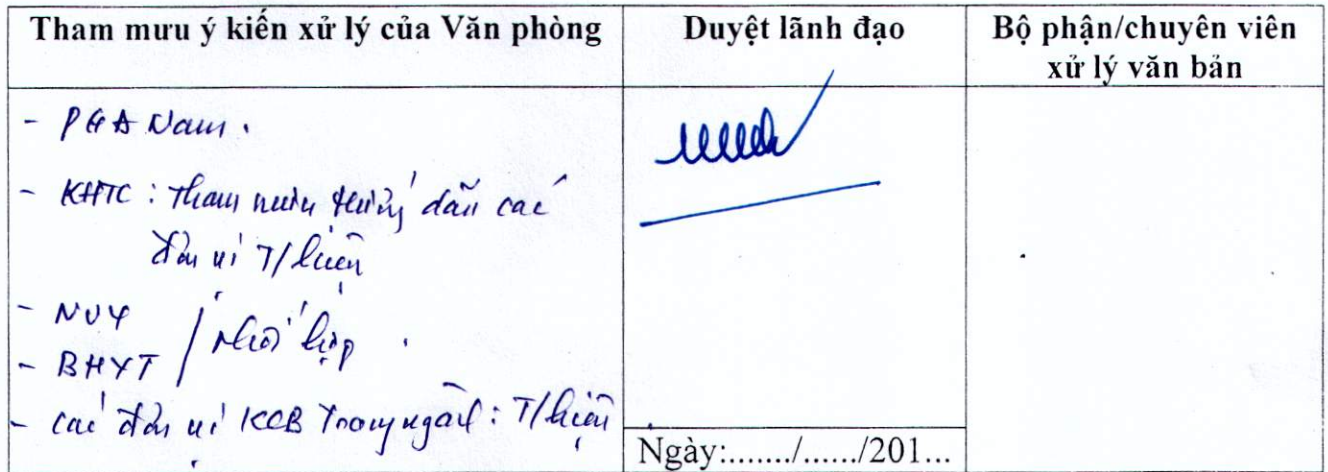 Tham mưu ý kiến xử lý của Văn phòng
Duyệt lãnh đạo
Bộ phận/chuyên viên
xử lý văn bản
- PGĐ Nam.
- KHTC: Tham mưu hướng dẫn các
đơn vị T/hiện
- NVY
- BHYT / phối hợp.
- Các đơn vị KCB Trong ngành: T/hiện
Ngày:......./....../201...